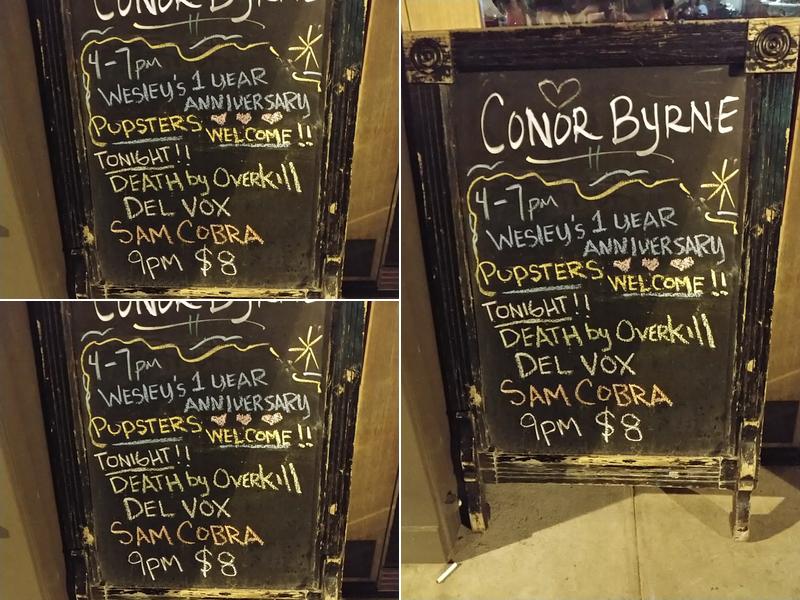 CONOR BYRNE
4-7pm
WESLEY'S 1 YEAR
ANNIVERSARY
PUPSTERS WELCOME!!
TONIGHT!!
DEATH by OVERKill
DEL VOX
SAM COBRA
9pm $8
CONOR BYRNE
4-7pm
WESLEY'S 1 YEAR
ANNIVERSARY
PUPSTERS WELCOME!!
TONIGHT!!
DEATH by OVERKill
DEL VOX
SAM COBRA
9pm $8
CONOR BYRNE
4-7pm
WESLEY'S 1 YEAR
ANNIVERSARY
PUPSTERS WELCOME!!
TONIGHT!!
DEATH by OVERKill
DEL VOX
SAM COBRA
9pm $8